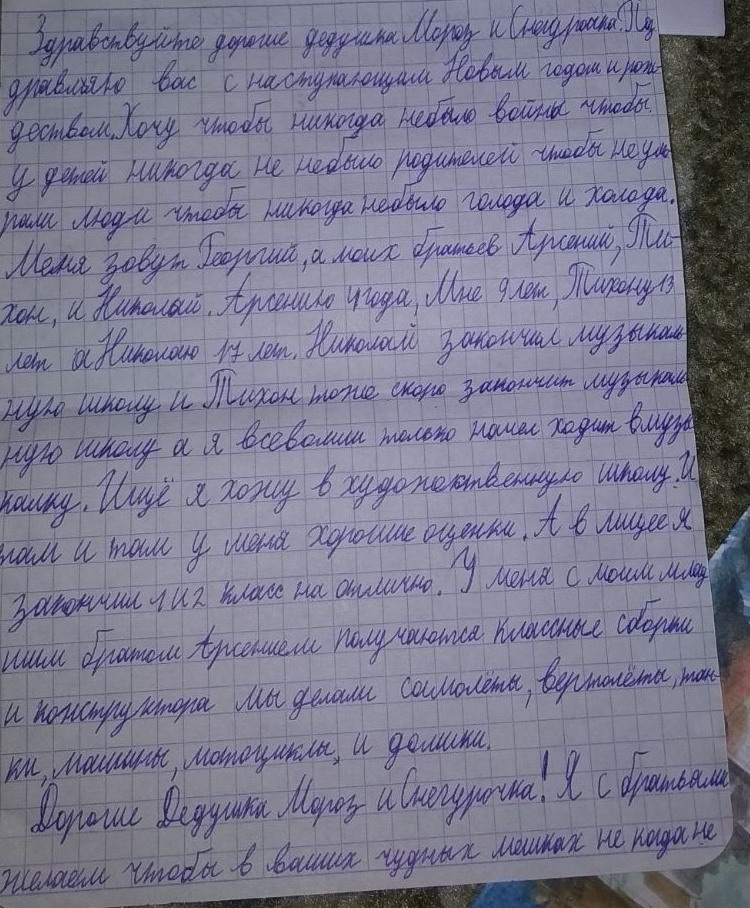 Здравствуйте дорогие дедушка Мороз и Снегурочка. Поз
дравляю вас с наступающим Новым годом и рож
деством. Хочу чтобы никогда небыло войны чтобы
у детей никогда не небыло родителей чтобы не уми
рали люди чтобы никогда небыло голода и холода.
Меня зовут Георгий, а моих братьев Арсений, Ти-
хон, и Николай. Арсению 4 года, Мне 9 лет, Тихону 13
лет а Николаю 17 лет. Николай закончил музыкаль
ную школу и Тихон тоже скоро закончит музыкаль
ную школу а я всеволиш только начел ходит в музы
калку. Ищё я хожу в художоственную школу. И
там и там у меня хорошие оценки. А в лицее я
закончил 1 и 2 класс на отлично. У меня с моим млад
шим братом Арсением получаются классные сборки
и конструктора мы делали самолёты, вертолёты, тан-
ки, машины, мотоциклы, и домики.
Дорогие Дедушка Мороз и Снегурочка! Я с братьями
желаем чтобы в ваших чудных мешках не когда не